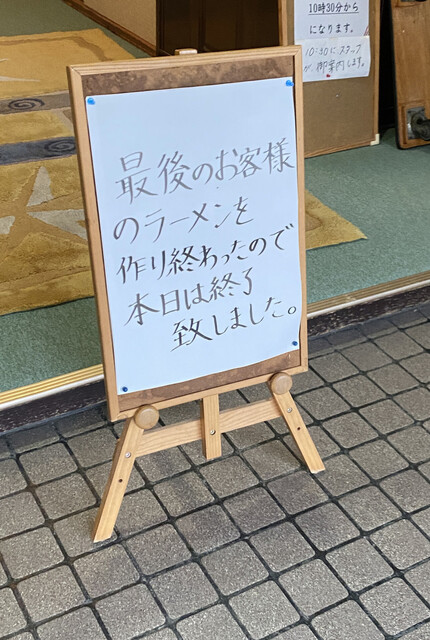 10時30分から
になります。
10:30にスタッフ
が、御案内します。
最後のお客様
のラーメンを
作り終わったので
本日は終了
致しました。